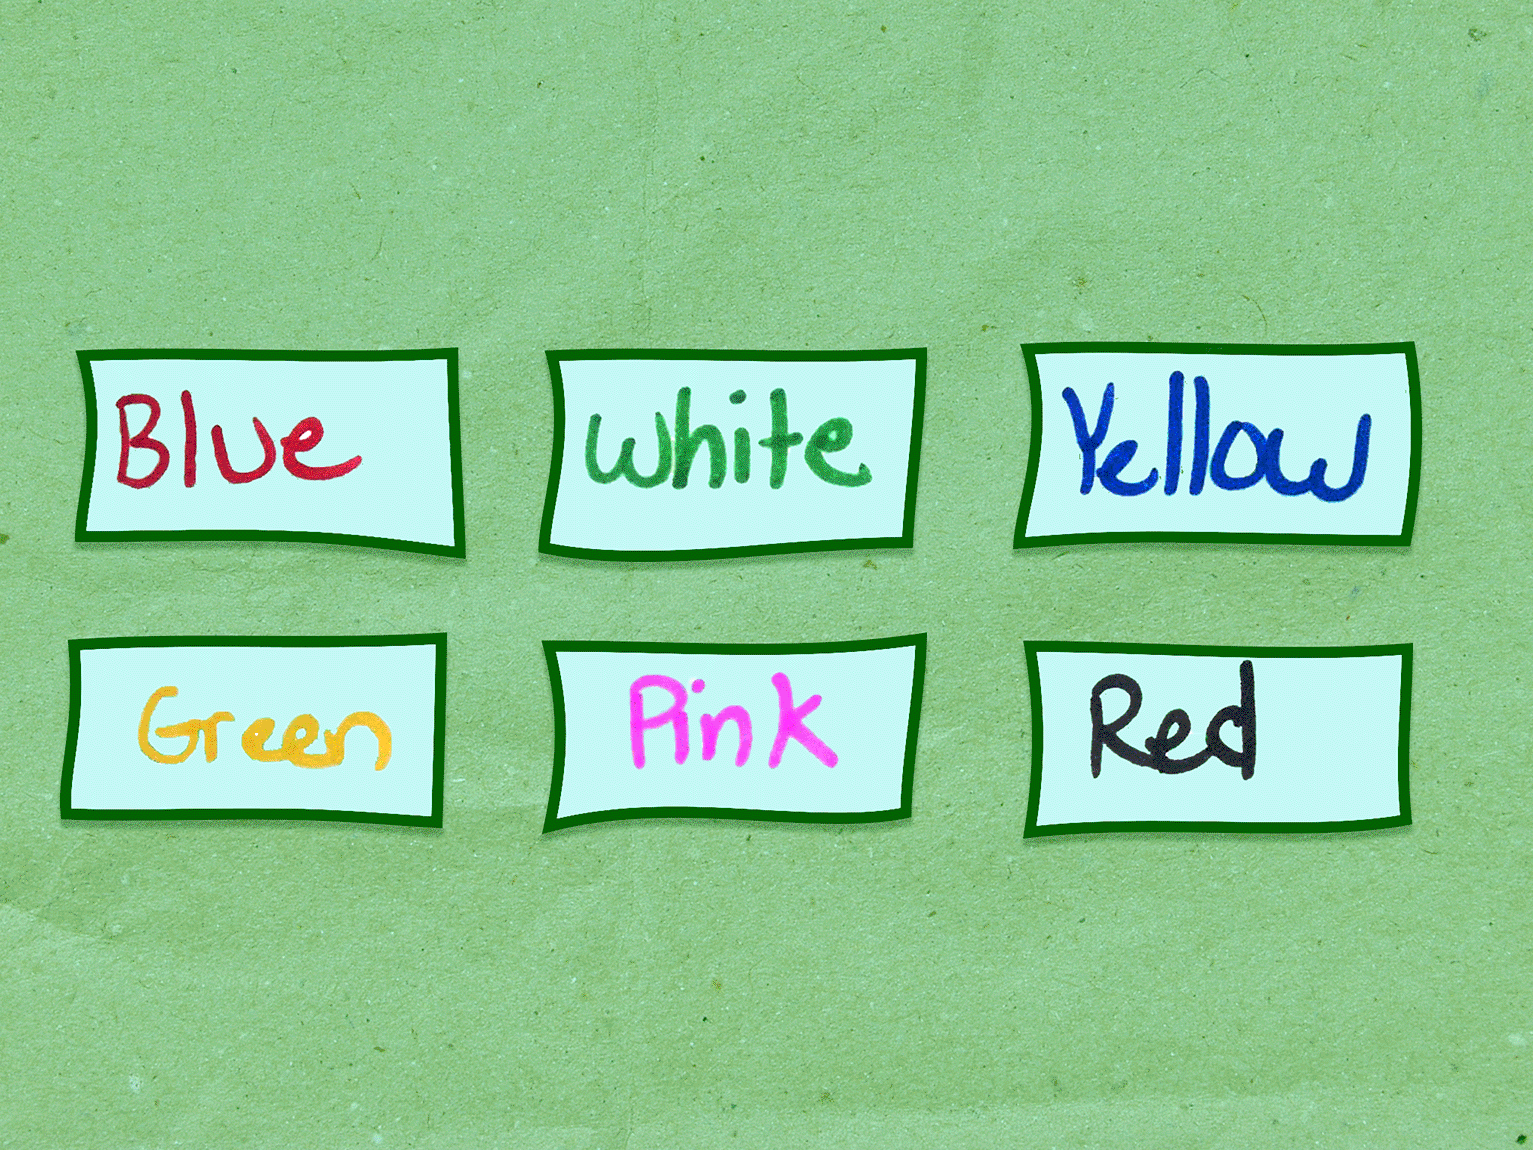 Blue
White
Yellow
Green
Pink
Red